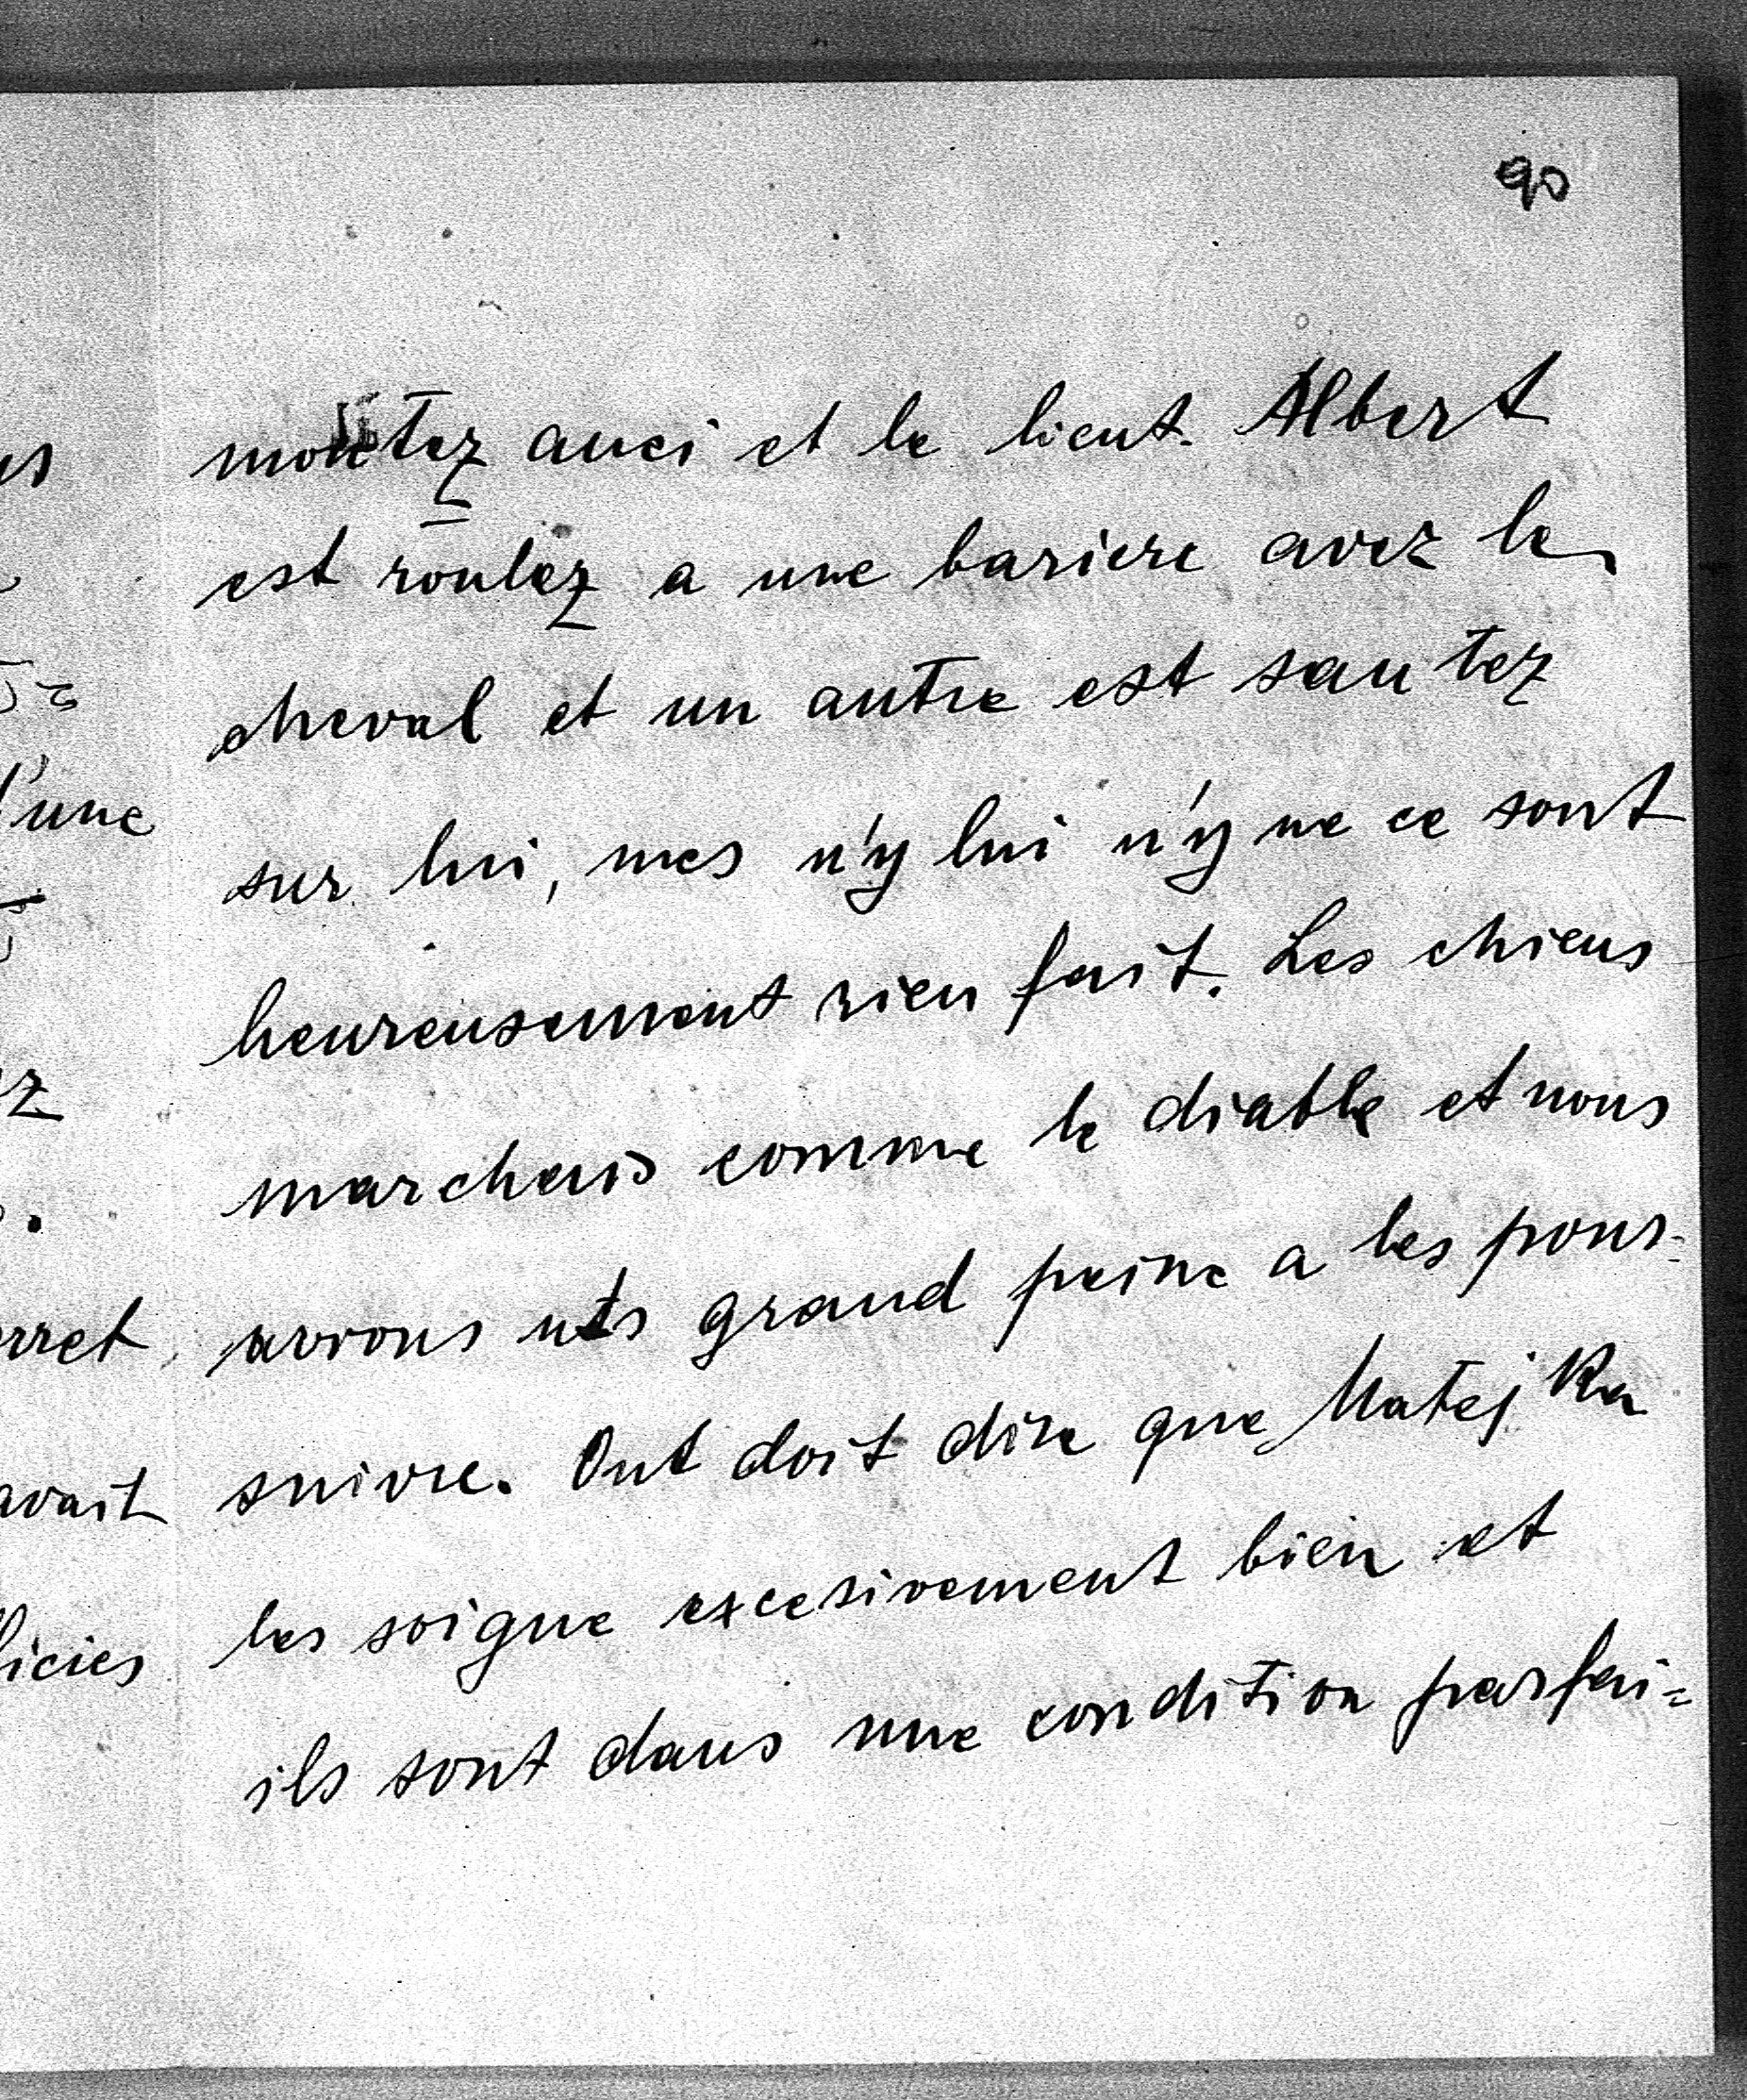 90
us
montez auci et le lieut. Albert
est roulez a une bariere avez le
cheval et un autre est sautez
d'une
sur lui, mes n'y lui n'y ne ce sont
heureusement rien fait. Les chiens
ez
marchais comme le diable et nous
erret
avions uts grand peine a les pour-
suivre. Ont doit dire que Matejka
avait
les soigne excesivement bien et
licies
ils sont dans une condition parfai=